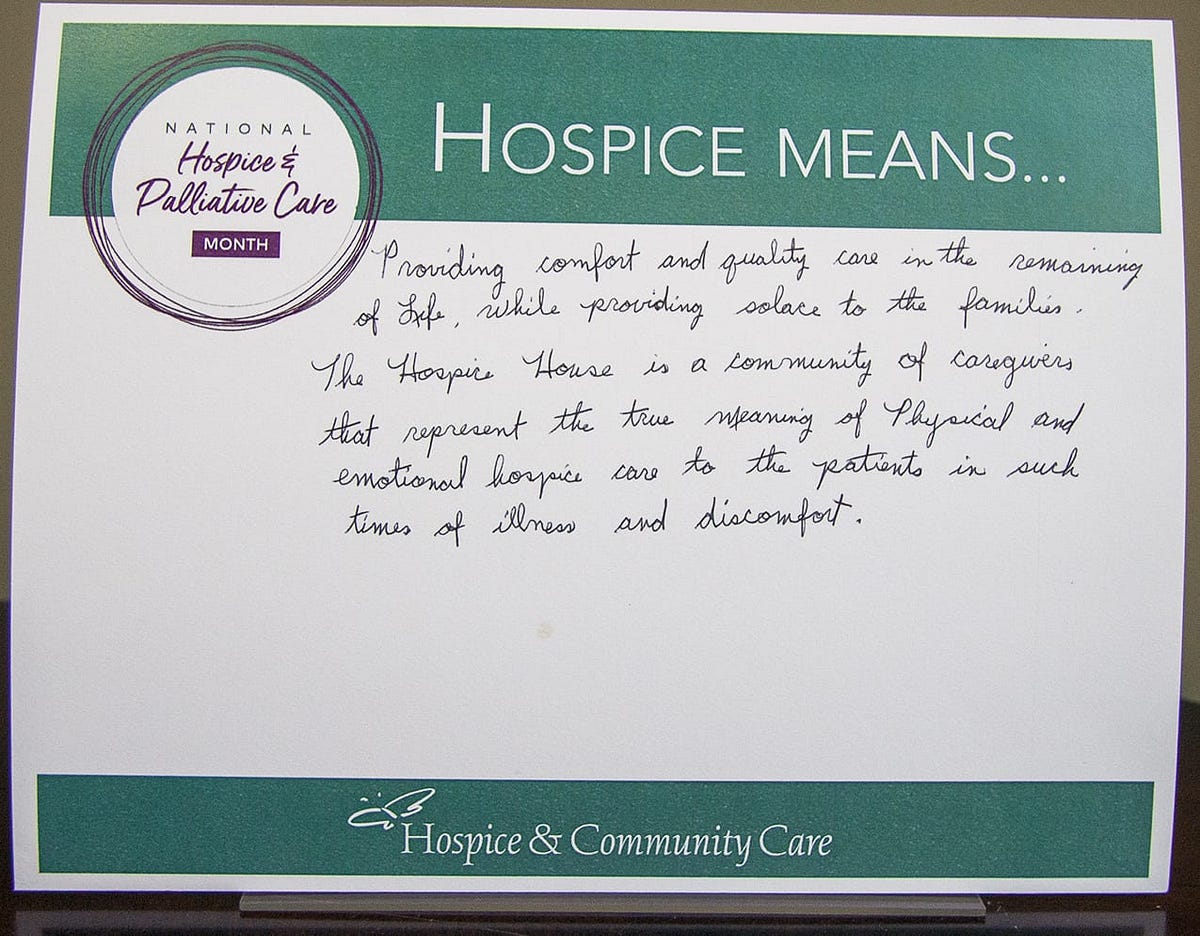 NATIONAL
Hospice &
Palliative Care
MONTH
HOSPICE MEANS...
Providing comfort and quality care in the remaining
of Life, while providing solace to the families.
The Hospice House is a community of caregivers
that represent the true meaning of Physical and
emotional hospice care to the patients in such
times of illness and discomfort.
Hospice & Community Care